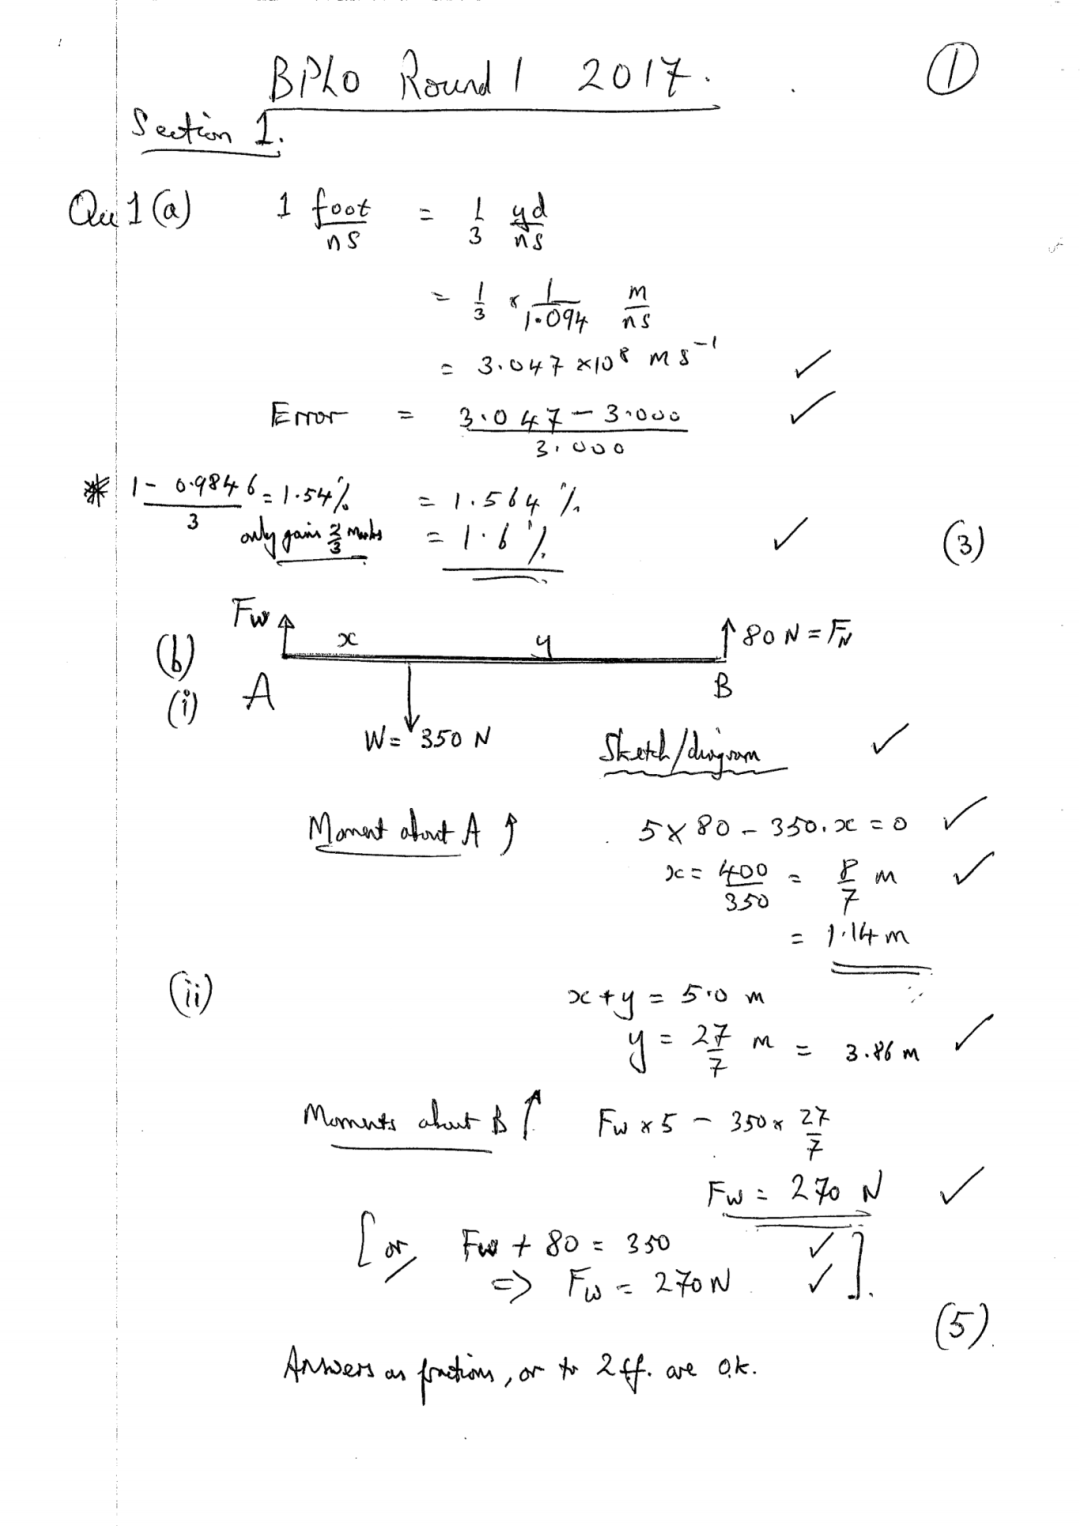 BPhO Round 1 2017.
①
Section 1.
Qu 1 (a) 1 foot/ns = 1/3 yd/ns
= 1/3 × 1/1.094 m/ns
= 3.047 ×10⁸ m s⁻¹ ✓
Error = (3.047 − 3.000)/3.000 ✓
* (1 - 0.9846)/3 = 1.54% = 1.564 %
only gains 2/3 marks = 1.6 % ✓ (3)
(b) Fw x y 80 N = F_N
(i) A B
W = 350 N
Sketch/diagram ✓
Moment about A 5 × 80 − 350.x = 0 ✓
x = 400/350 = 8/7 m ✓
= 1.14 m
(ii) x + y = 5.0 m
y = 27/7 m = 3.86 m ✓
Moments about B Fw × 5 − 350 × 27/7
Fw = 270 N ✓
[or, Fw + 80 = 350 ✓
=> Fw = 270 N ✓].
(5).
Answers as fractions, or to 2 sf. are o.k.